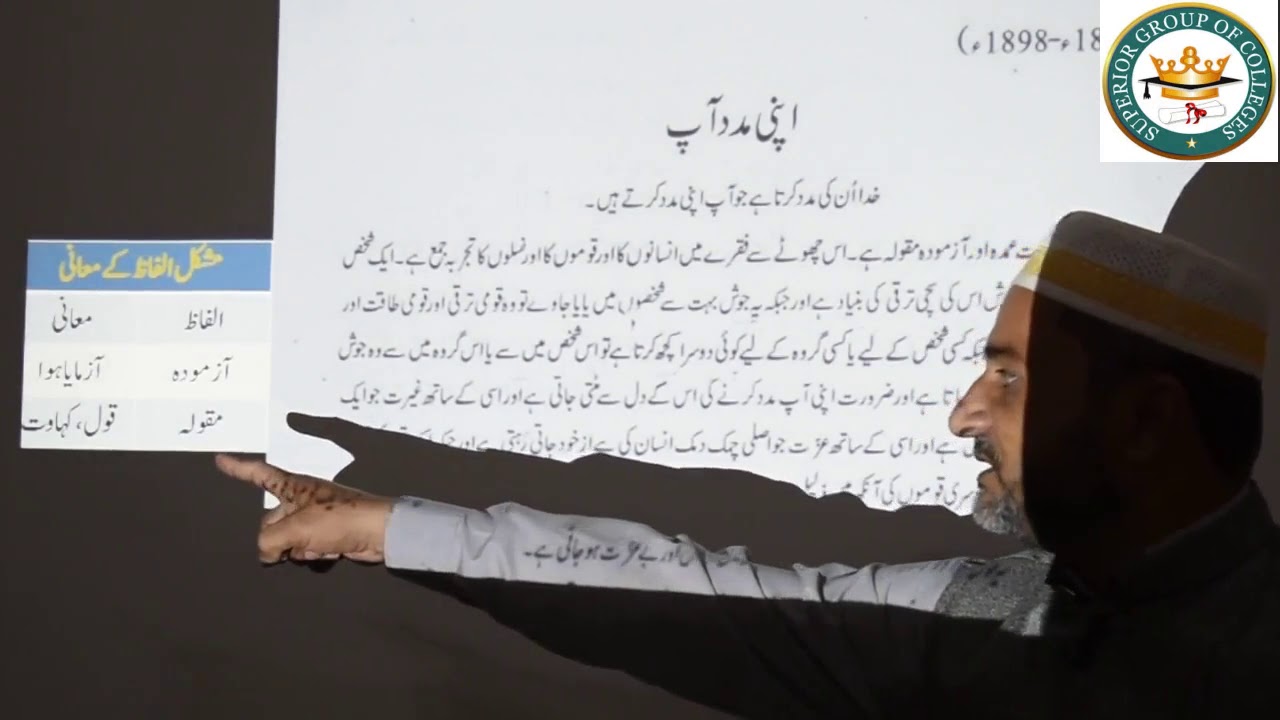 SUPERIOR GROUP OF COLLEGES
1898ء)
اپنی مدد آپ
خدا اُن کی مدد کرتا ہے جو آپ اپنی مدد کرتے ہیں۔
عمدہ اور آزمودہ مقولہ ہے۔ اس چھوٹے سے فقرے میں انسانوں کا اور قوموں کا اور نسلوں کا تجربہ جمع ہے۔ ایک شخص
اس کی سچی ترقی کی بنیاد ہے اور جبکہ یہ جوش بہت سے شخصوں میں پایا جاوے تو وہ قومی ترقی اور قومی طاقت اور
جبکہ کسی شخص کے لیے یا کسی گروہ کے لیے کوئی دوسرا کچھ کرتا ہے تو اس شخص میں سے یا اس گروہ میں سے وہ جوش
جاتا ہے اور ضرورت اپنی آپ مدد کرنے کی اس کے دل سے مٹتی جاتی ہے اور اسی کے ساتھ غیرت جو ایک
ہے اور اسی کے ساتھ عزت جو اصلی چمک دمک انسان کی ہے از خود جاتی رہتی ہے اور
قوموں کی آنکھ میں
اور بے عزت ہو جاتی ہے۔
مشکل الفاظ کے معانی
الفاظ معانی
آزمودہ آزمایا ہوا
مقولہ قول، کہاوت